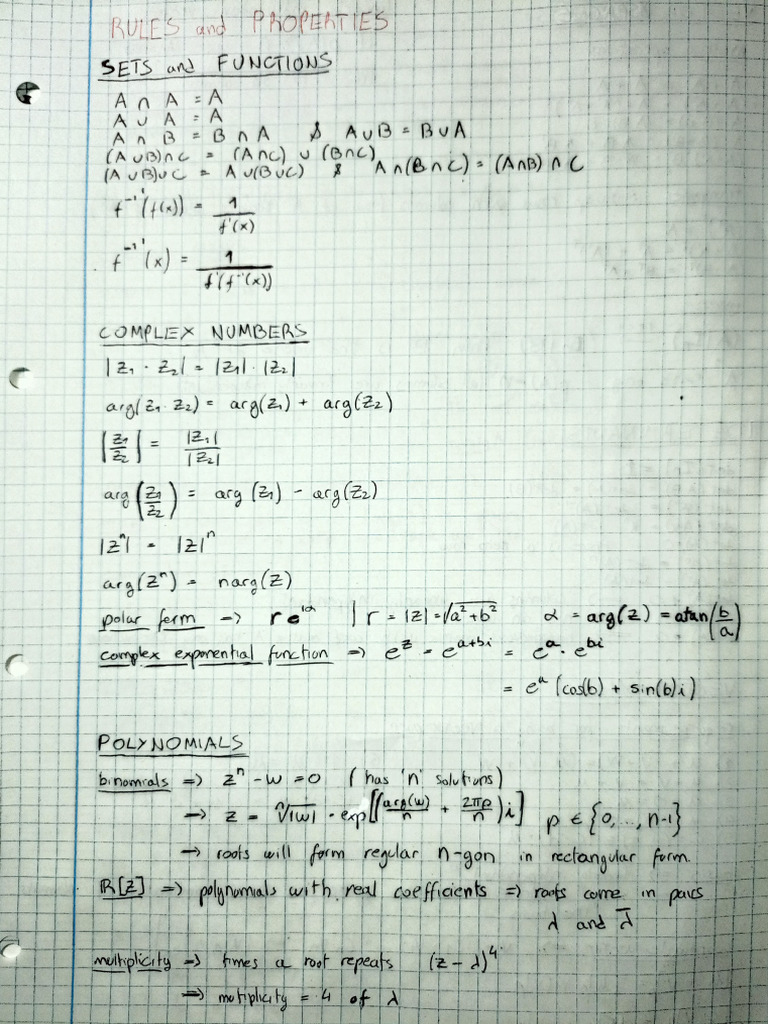 RULES and PROPERTIES
SETS and FUNCTIONS
A ∩ A = A
A ∪ A = A
A ∩ B = B ∩ A & A∪B = B∪A
(A∪B)∩C = (A∩C) ∪ (B∩C)
(A∪B)∪C = A∪(B∪C) & A∩(B∩C) = (A∩B) ∩ C
f⁻¹'(f(x)) = 1/f'(x)
f⁻¹'(x) = 1/f'(f⁻¹(x))
COMPLEX NUMBERS
|z₁ · z₂| = |z₁| · |z₂|
arg(z₁ · z₂) = arg(z₁) + arg(z₂)
|z₁/z₂| = |z₁|/|z₂|
arg(z₁/z₂) = arg(z₁) - arg(z₂)
|zⁿ| = |z|ⁿ
arg(zⁿ) = narg(z)
polar form → r e^iα | r = |z| = √(a²+b²) α = arg(z) = atan(b/a)
complex exponential function ⇒ e^z = e^(a+bi) = e^a · e^bi
= e^a (cos(b) + sin(b)i)
POLYNOMIALS
binomials ⇒ zⁿ - w = 0 (has 'n' solutions)
→ z = ⁿ√|w| · exp[(arg(w)/n + 2πp/n)i] p ∈ {0,..., n-1}
→ roots will form regular n-gon in rectangular form.
ℝ[z] ⇒ polynomials with real coefficients ⇒ roots come in pairs
λ and λ̅
multiplicity ⇒ times a root repeats (z - λ)⁴
⇒ multiplicity = 4 of λ